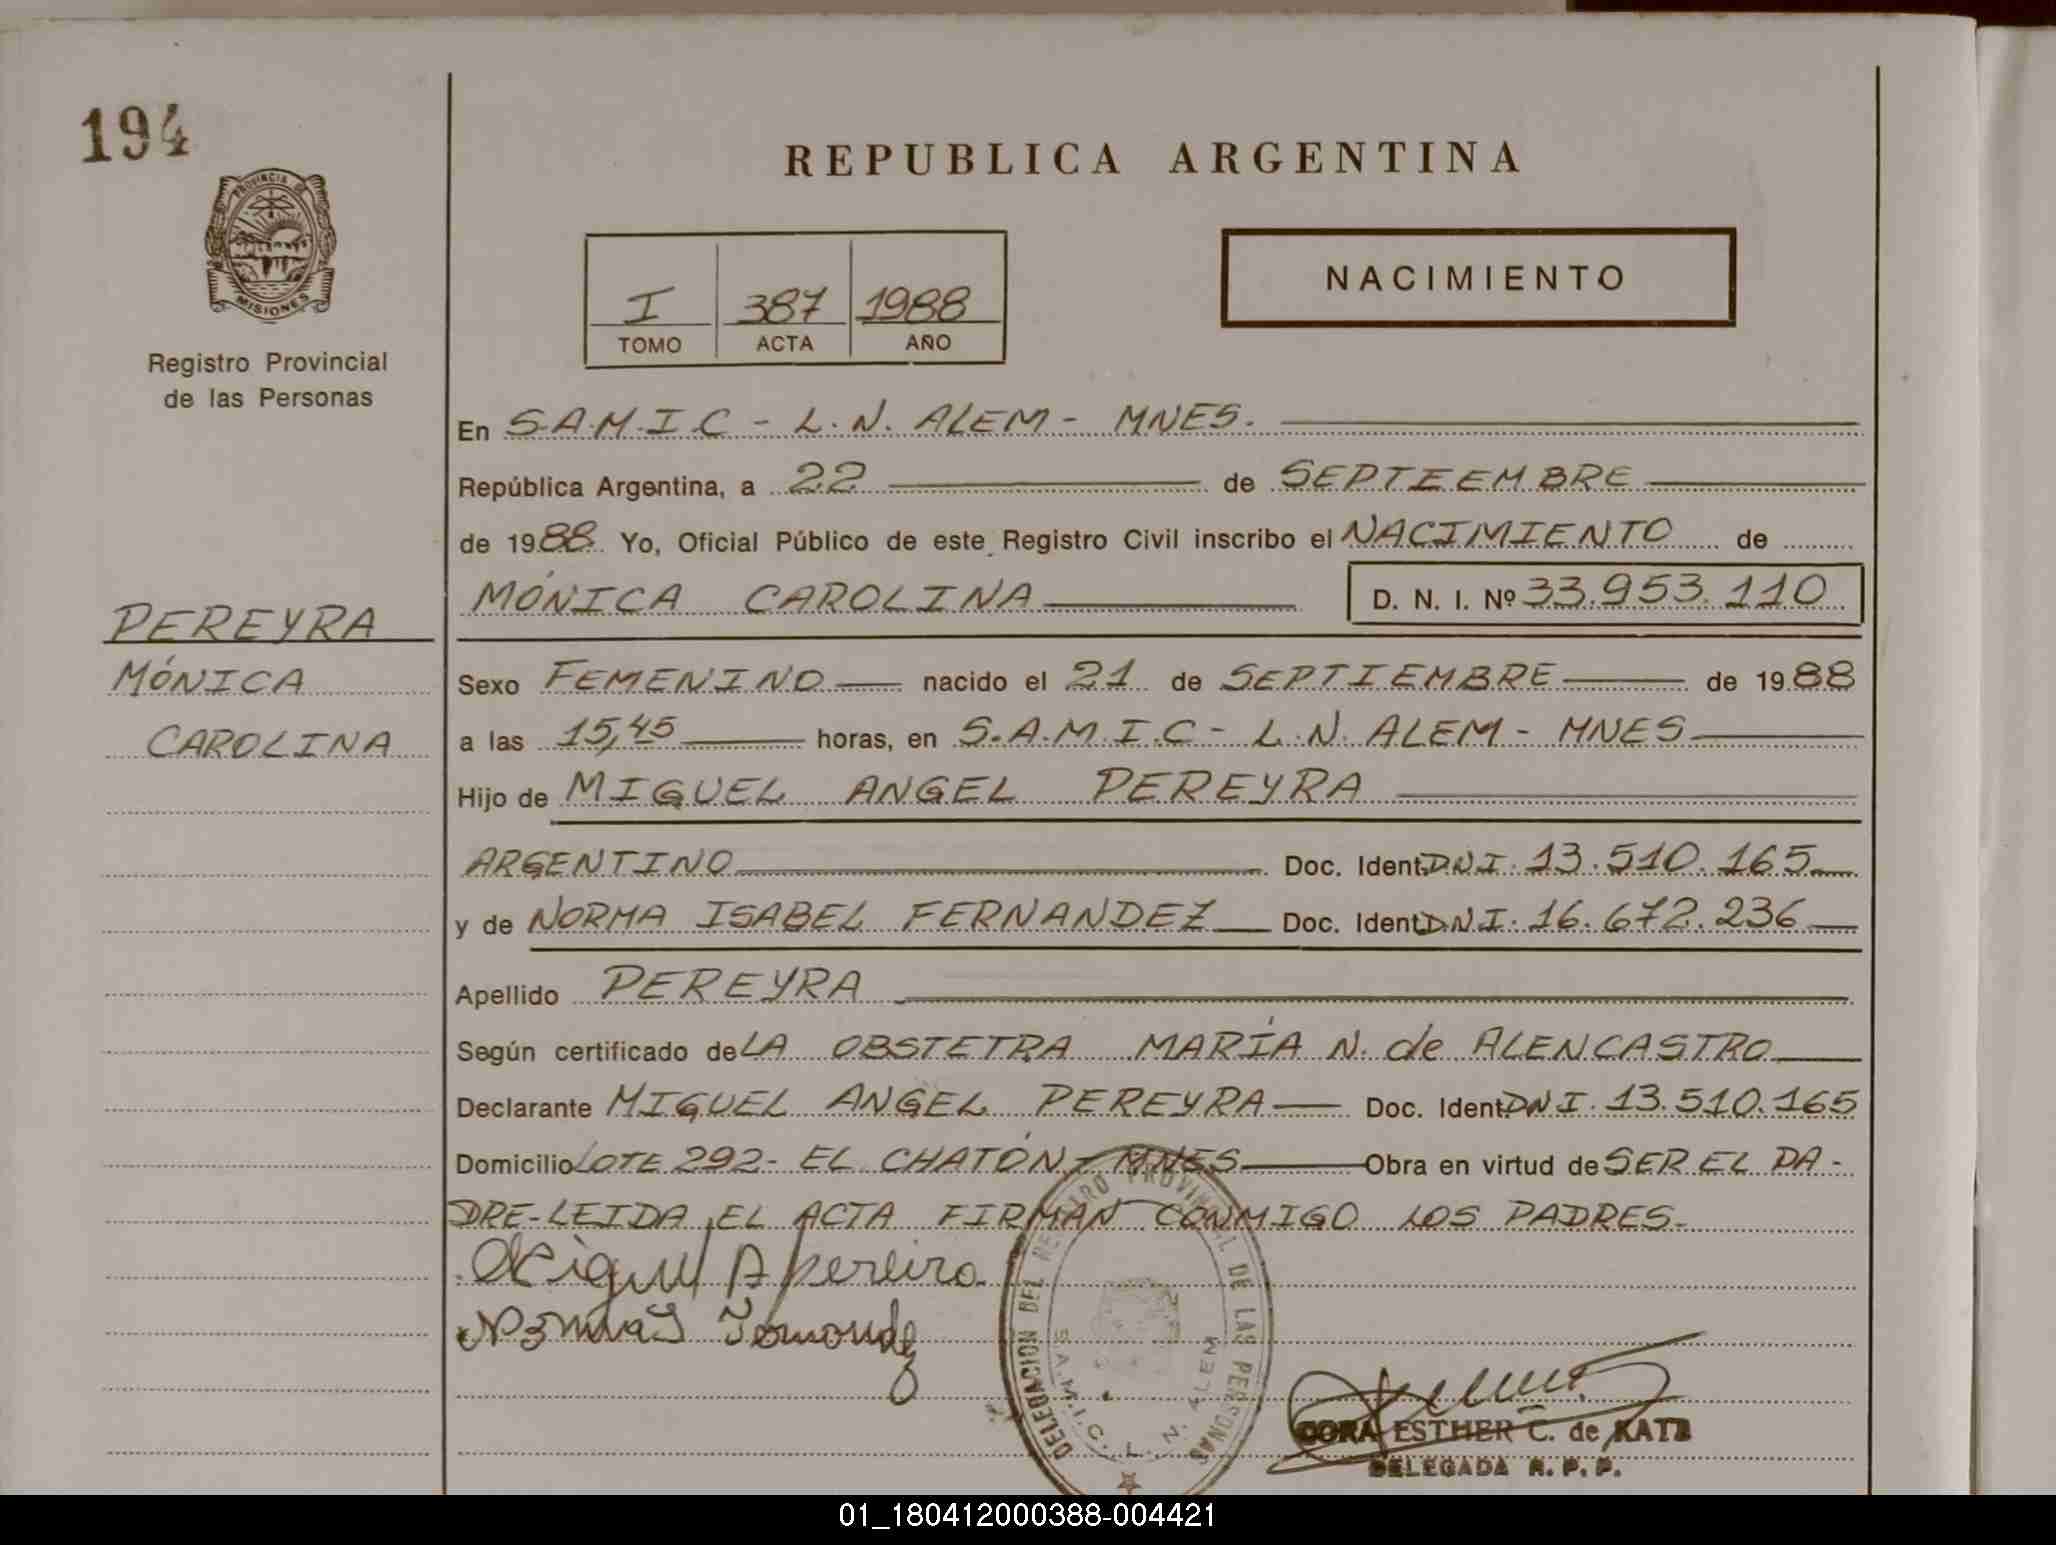 194
REPUBLICA ARGENTINA
PROVINCIA DE
MISIONES
Registro Provincial
de las Personas
I 387 1988
TOMO ACTA AÑO
NACIMIENTO
En S.A.M.I.C - L.N. ALEM - MNES.
República Argentina, a 22 de SEPTIEEMBRE
de 1988 Yo, Oficial Público de este Registro Civil inscribo el NACIMIENTO de
MÓNICA CAROLINA D. N. I. Nº 33.953.110
PEREYRA
MÓNICA
CAROLINA
Sexo FEMENINO nacido el 21 de SEPTIEMBRE de 1988
a las 15,45 horas, en S.A.M.I.C - L.N. ALEM - MNES
Hijo de MIGUEL ANGEL PEREYRA
ARGENTINO Doc. Ident. DNI. 13.510.165
y de NORMA ISABEL FERNANDEZ Doc. Ident. DNI. 16.672.236
Apellido PEREYRA
Según certificado de LA OBSTETRA MARÍA N. de ALENCASTRO
Declarante MIGUEL ANGEL PEREYRA Doc. Ident. DNI. 13.510.165
Domicilio LOTE 292- EL CHATÓN - MNES Obra en virtud de SER EL PA-
DRE-LEIDA EL ACTA FIRMAN CONMIGO LOS PADRES.
Miguel A pereira
Norma I Fernandez
DELEGACION DEL REGISTRO PROVINCIAL DE LAS PERSONAS
S.A.M.I.C. L. N. ALEM
CORA ESTHER C. de KATZ
DELEGADA R. P. P.
01_180412000388-004421